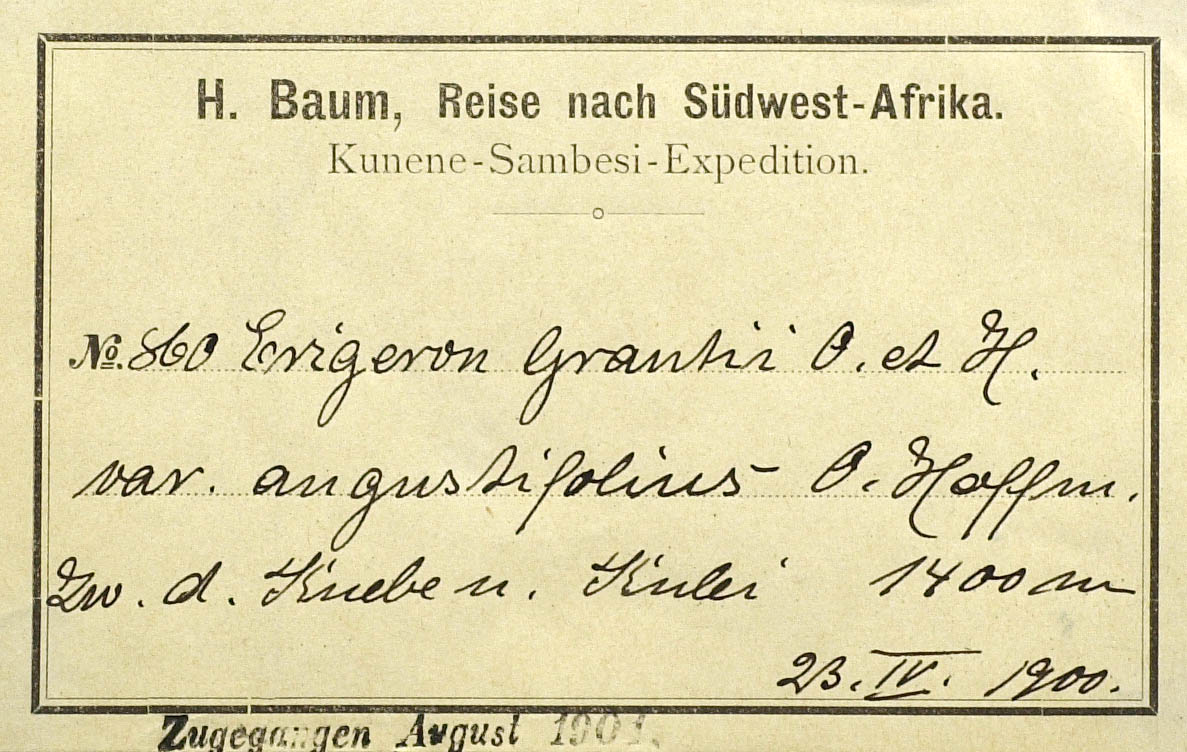 H. Baum, Reise nach Südwest-Afrika.
Kunene-Sambesi-Expedition.
No. 860 Erigeron Grantii O. et H.
var. angustifolius O. Hoffm.
Zw. d. Kuebe u. Kulei 1400 m
23. IV. 1900.
Zugegangen August 1901.